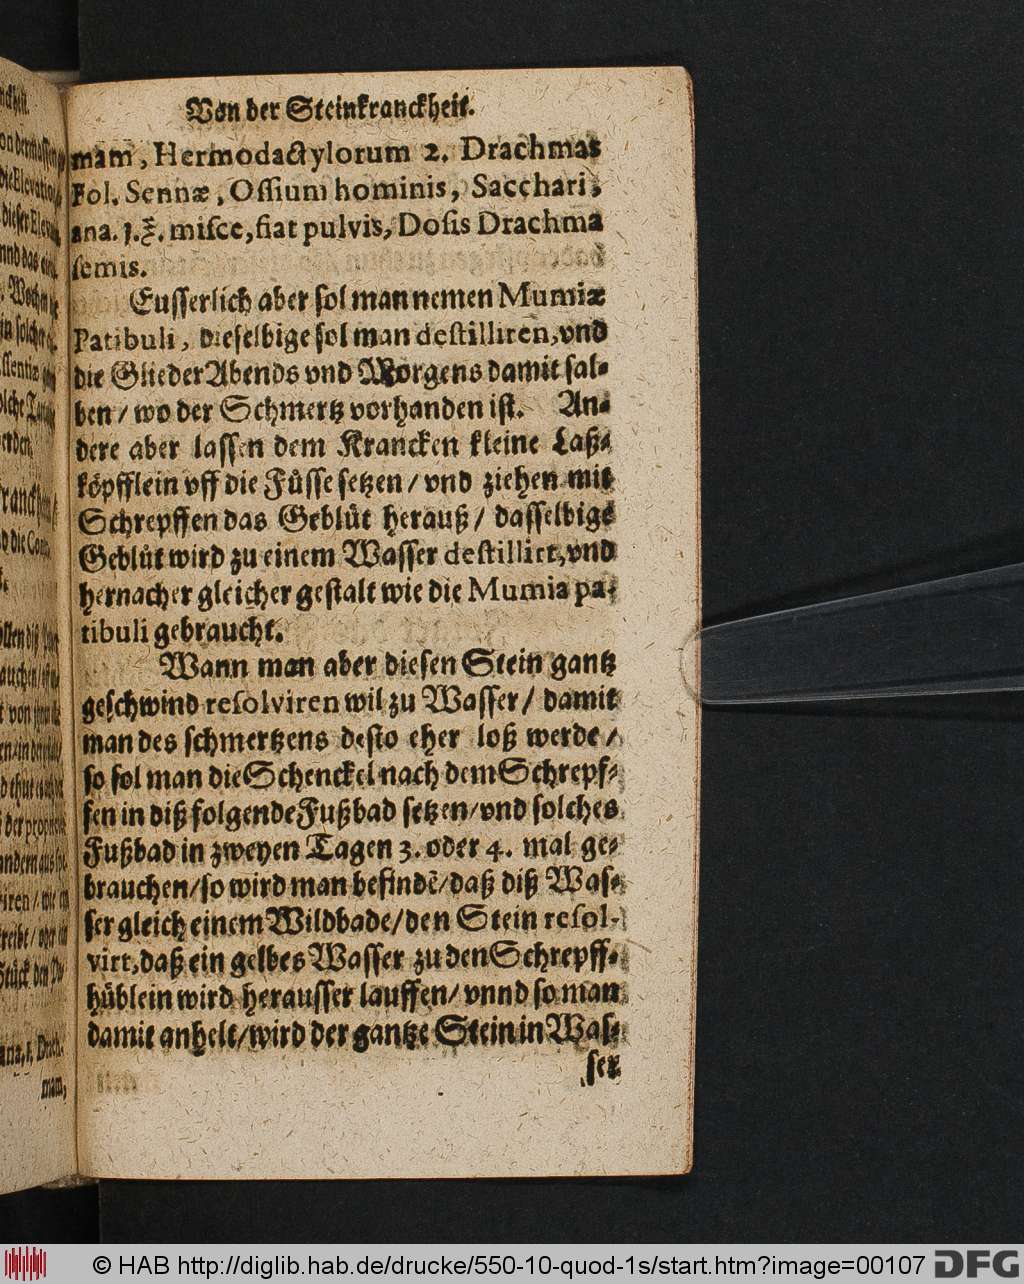 Von der Steinkranckheit.
mam, Hermodactylorum 2. Drachmas
Fol. Sennæ, Ossium hominis, Sacchari,
ana. j. ℥. misce, fiat pulvis, Dosis Drachma
semis.
Eusserlich aber sol man nemen Mumiæ
Patibuli, dieselbige sol man destilliren, vnd
die Glieder Abends vnd Morgens damit sal-
ben / wo der Schmertz vorhanden ist. An-
dere aber lassen dem Krancken kleine Laß-
köpfflein vff die Füsse setzen / vnd ziehen mit
Schrepffen das Geblüt herauß / dasselbige
Geblüt wird zu einem Wasser destilliert, vnd
hernacher gleicher gestalt wie die Mumia pa-
tibuli gebraucht.
Wann man aber diesen Stein gantz
geschwind resolviren wil zu Wasser / damit
man des schmertzens desto eher loß werde /
so sol man die Schenckel nach dem Schrepf-
fen in diß folgende Fußbad setzen / vnd solches
Fußbad in zweyen Tagen 3. oder 4. mal ge-
brauchen / so wird man befindẽ / daß diß Was-
ser gleich einem Wildbade / den Stein resol-
virt, daß ein gelbes Wasser zu den Schrepff-
hüblein wird herausser lauffen / vnnd so man
damit anhelt / wird der gantze Stein in Was-
ser
© HAB http://diglib.hab.de/drucke/550-10-quod-1s/start.htm?image=00107
DFG